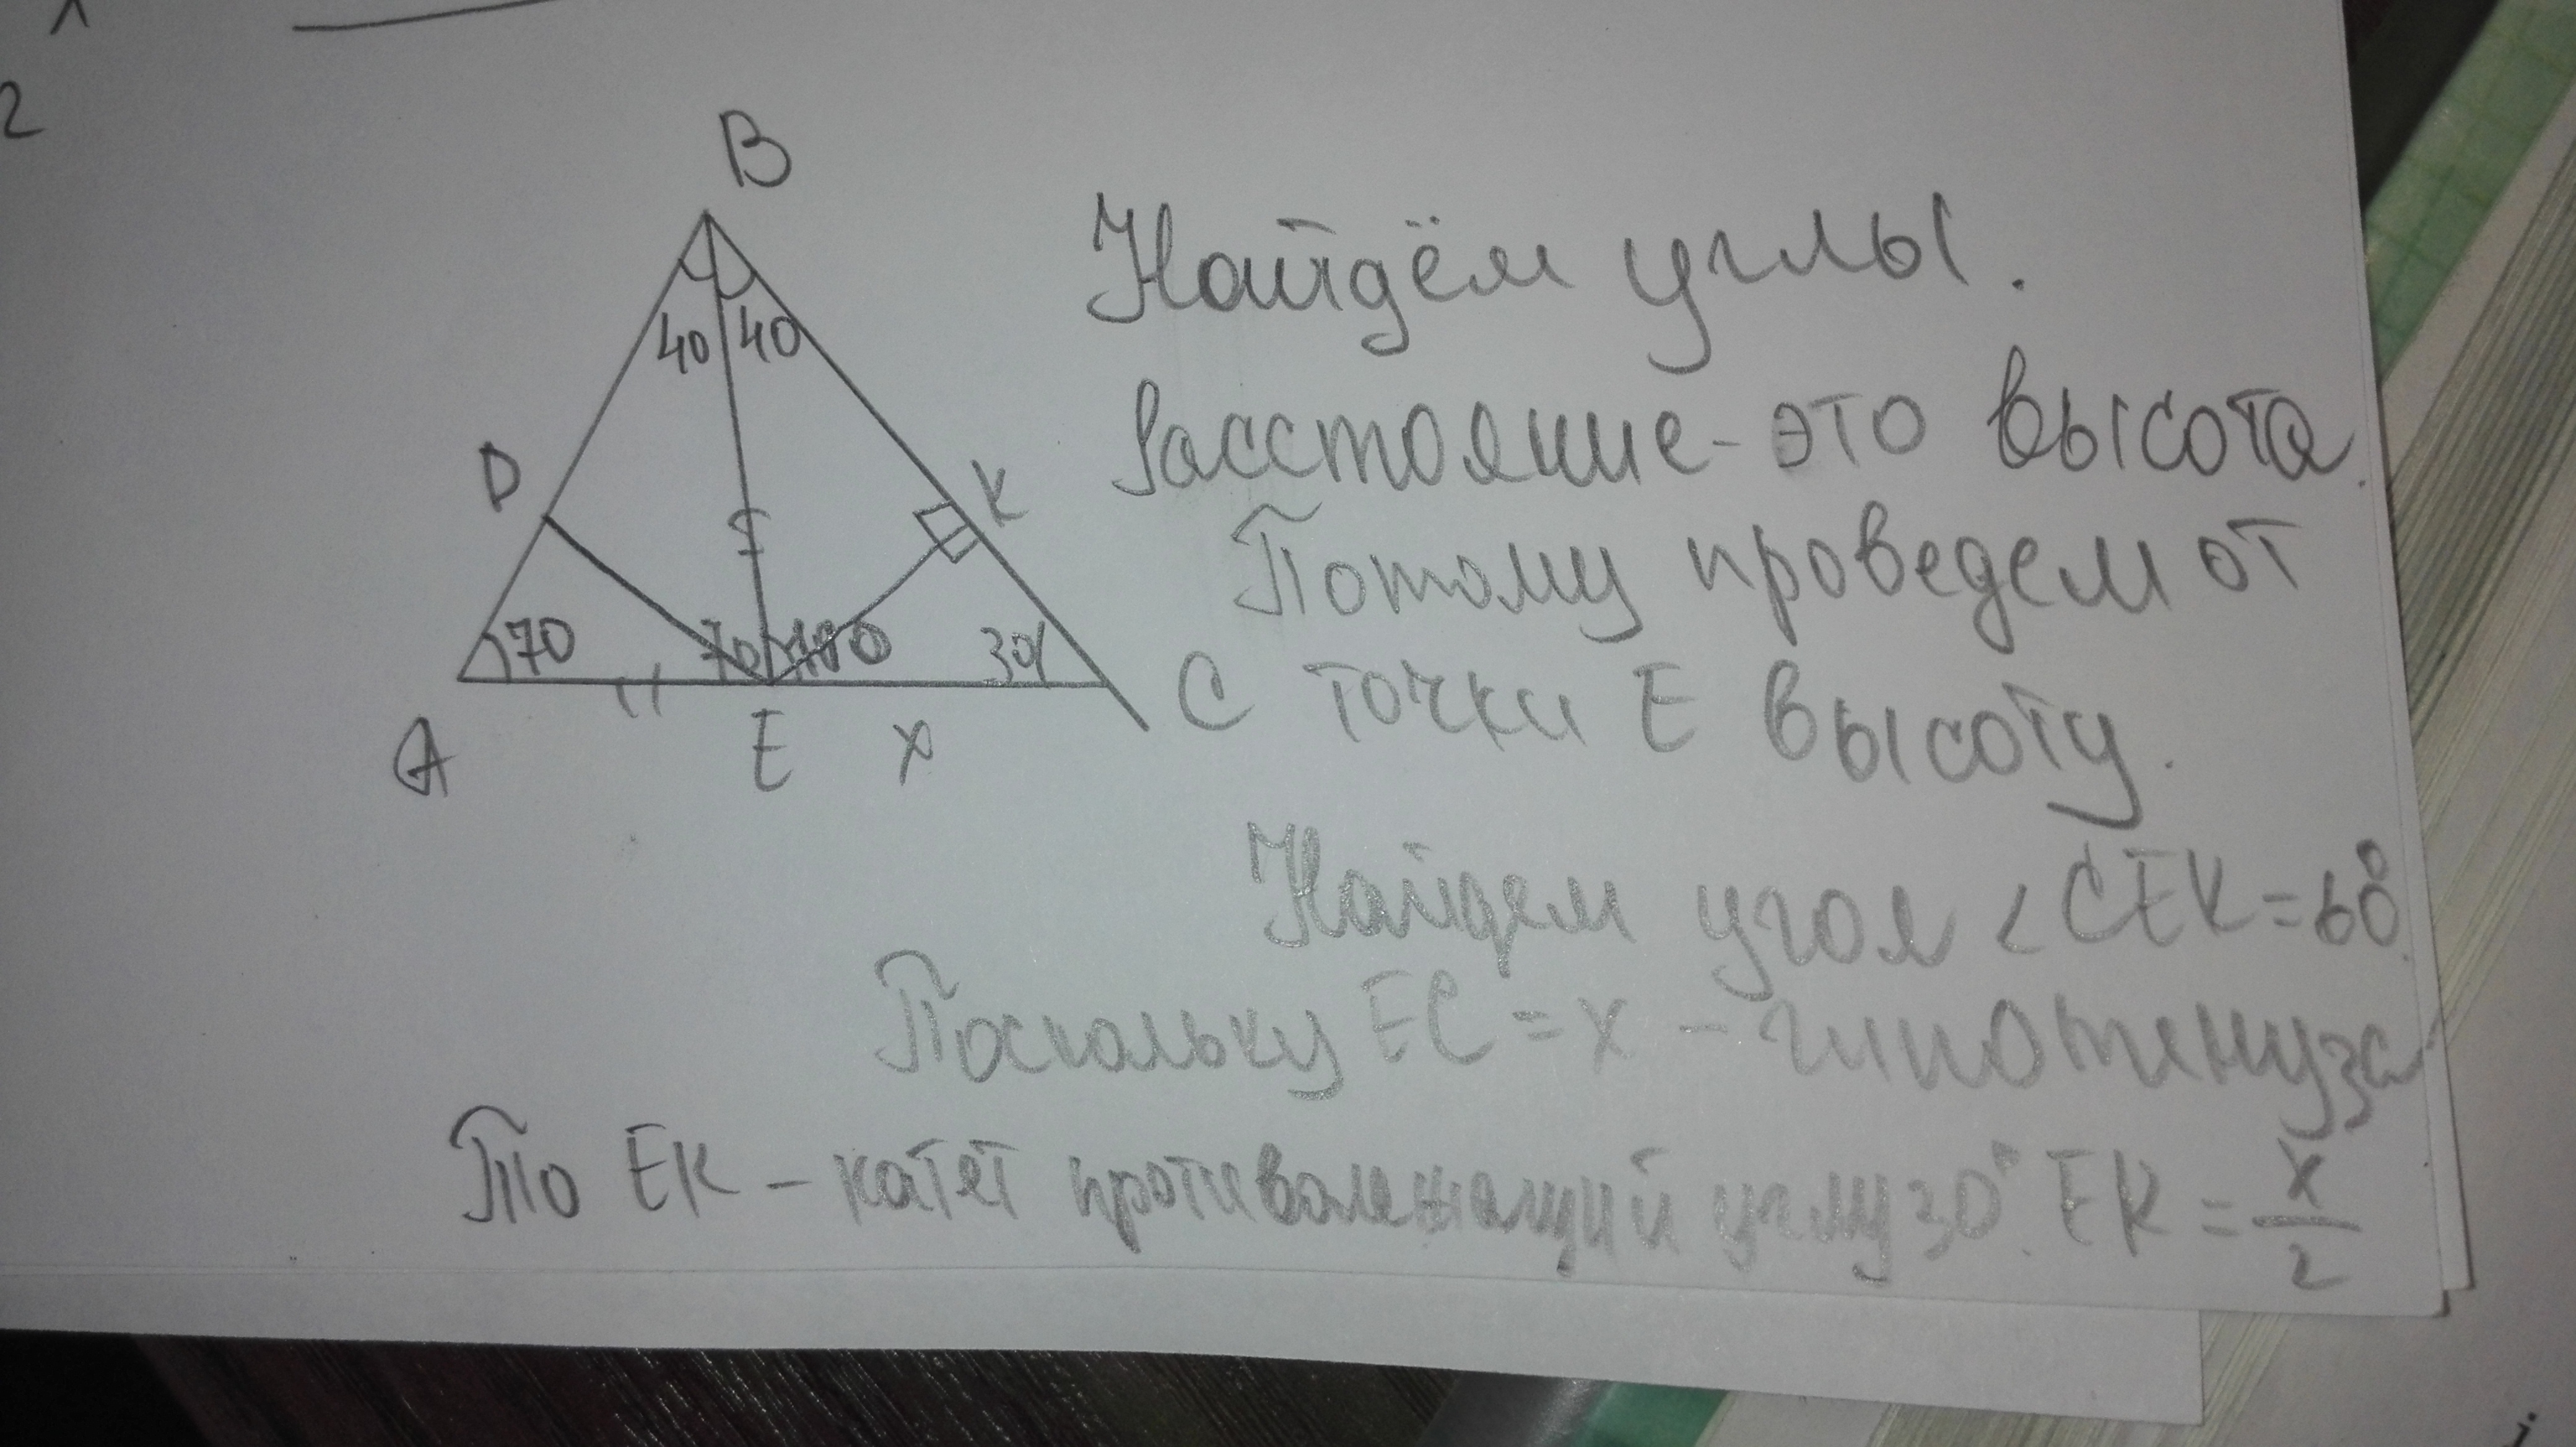 2
B
40 40
D
K
70
70
30
A
E
x
C
Найдём углы.
Расстояние - это высота.
Потому проведем от
точки E высоту.
Найдем угол < CEK = 60°
Поскольку EC = x - гипотенуза
То EK - катет противолежащий углу 30°. EK = x/2